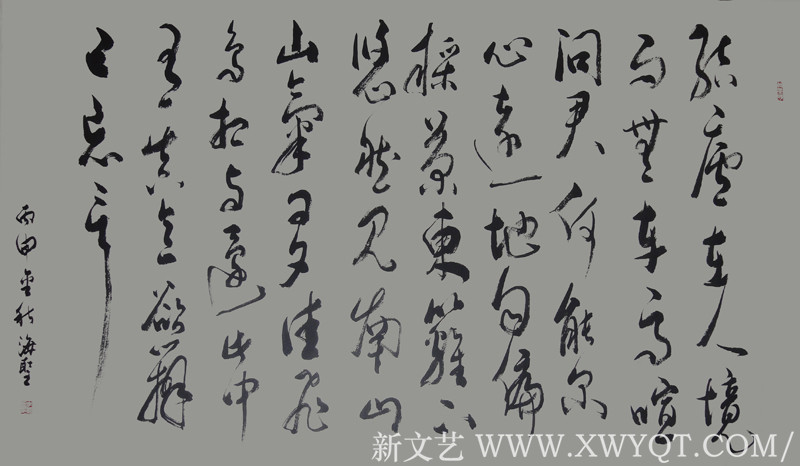 結廬在人境
而無車馬喧
问君何能尔
心遠地自偏
採菊東籬下
悠然見南山
山氣日夕佳飛
鳥相与還此中
有真意欲辨
已忘言
丙申金秋海聖
新文艺 WWW.XWYQT.COM/